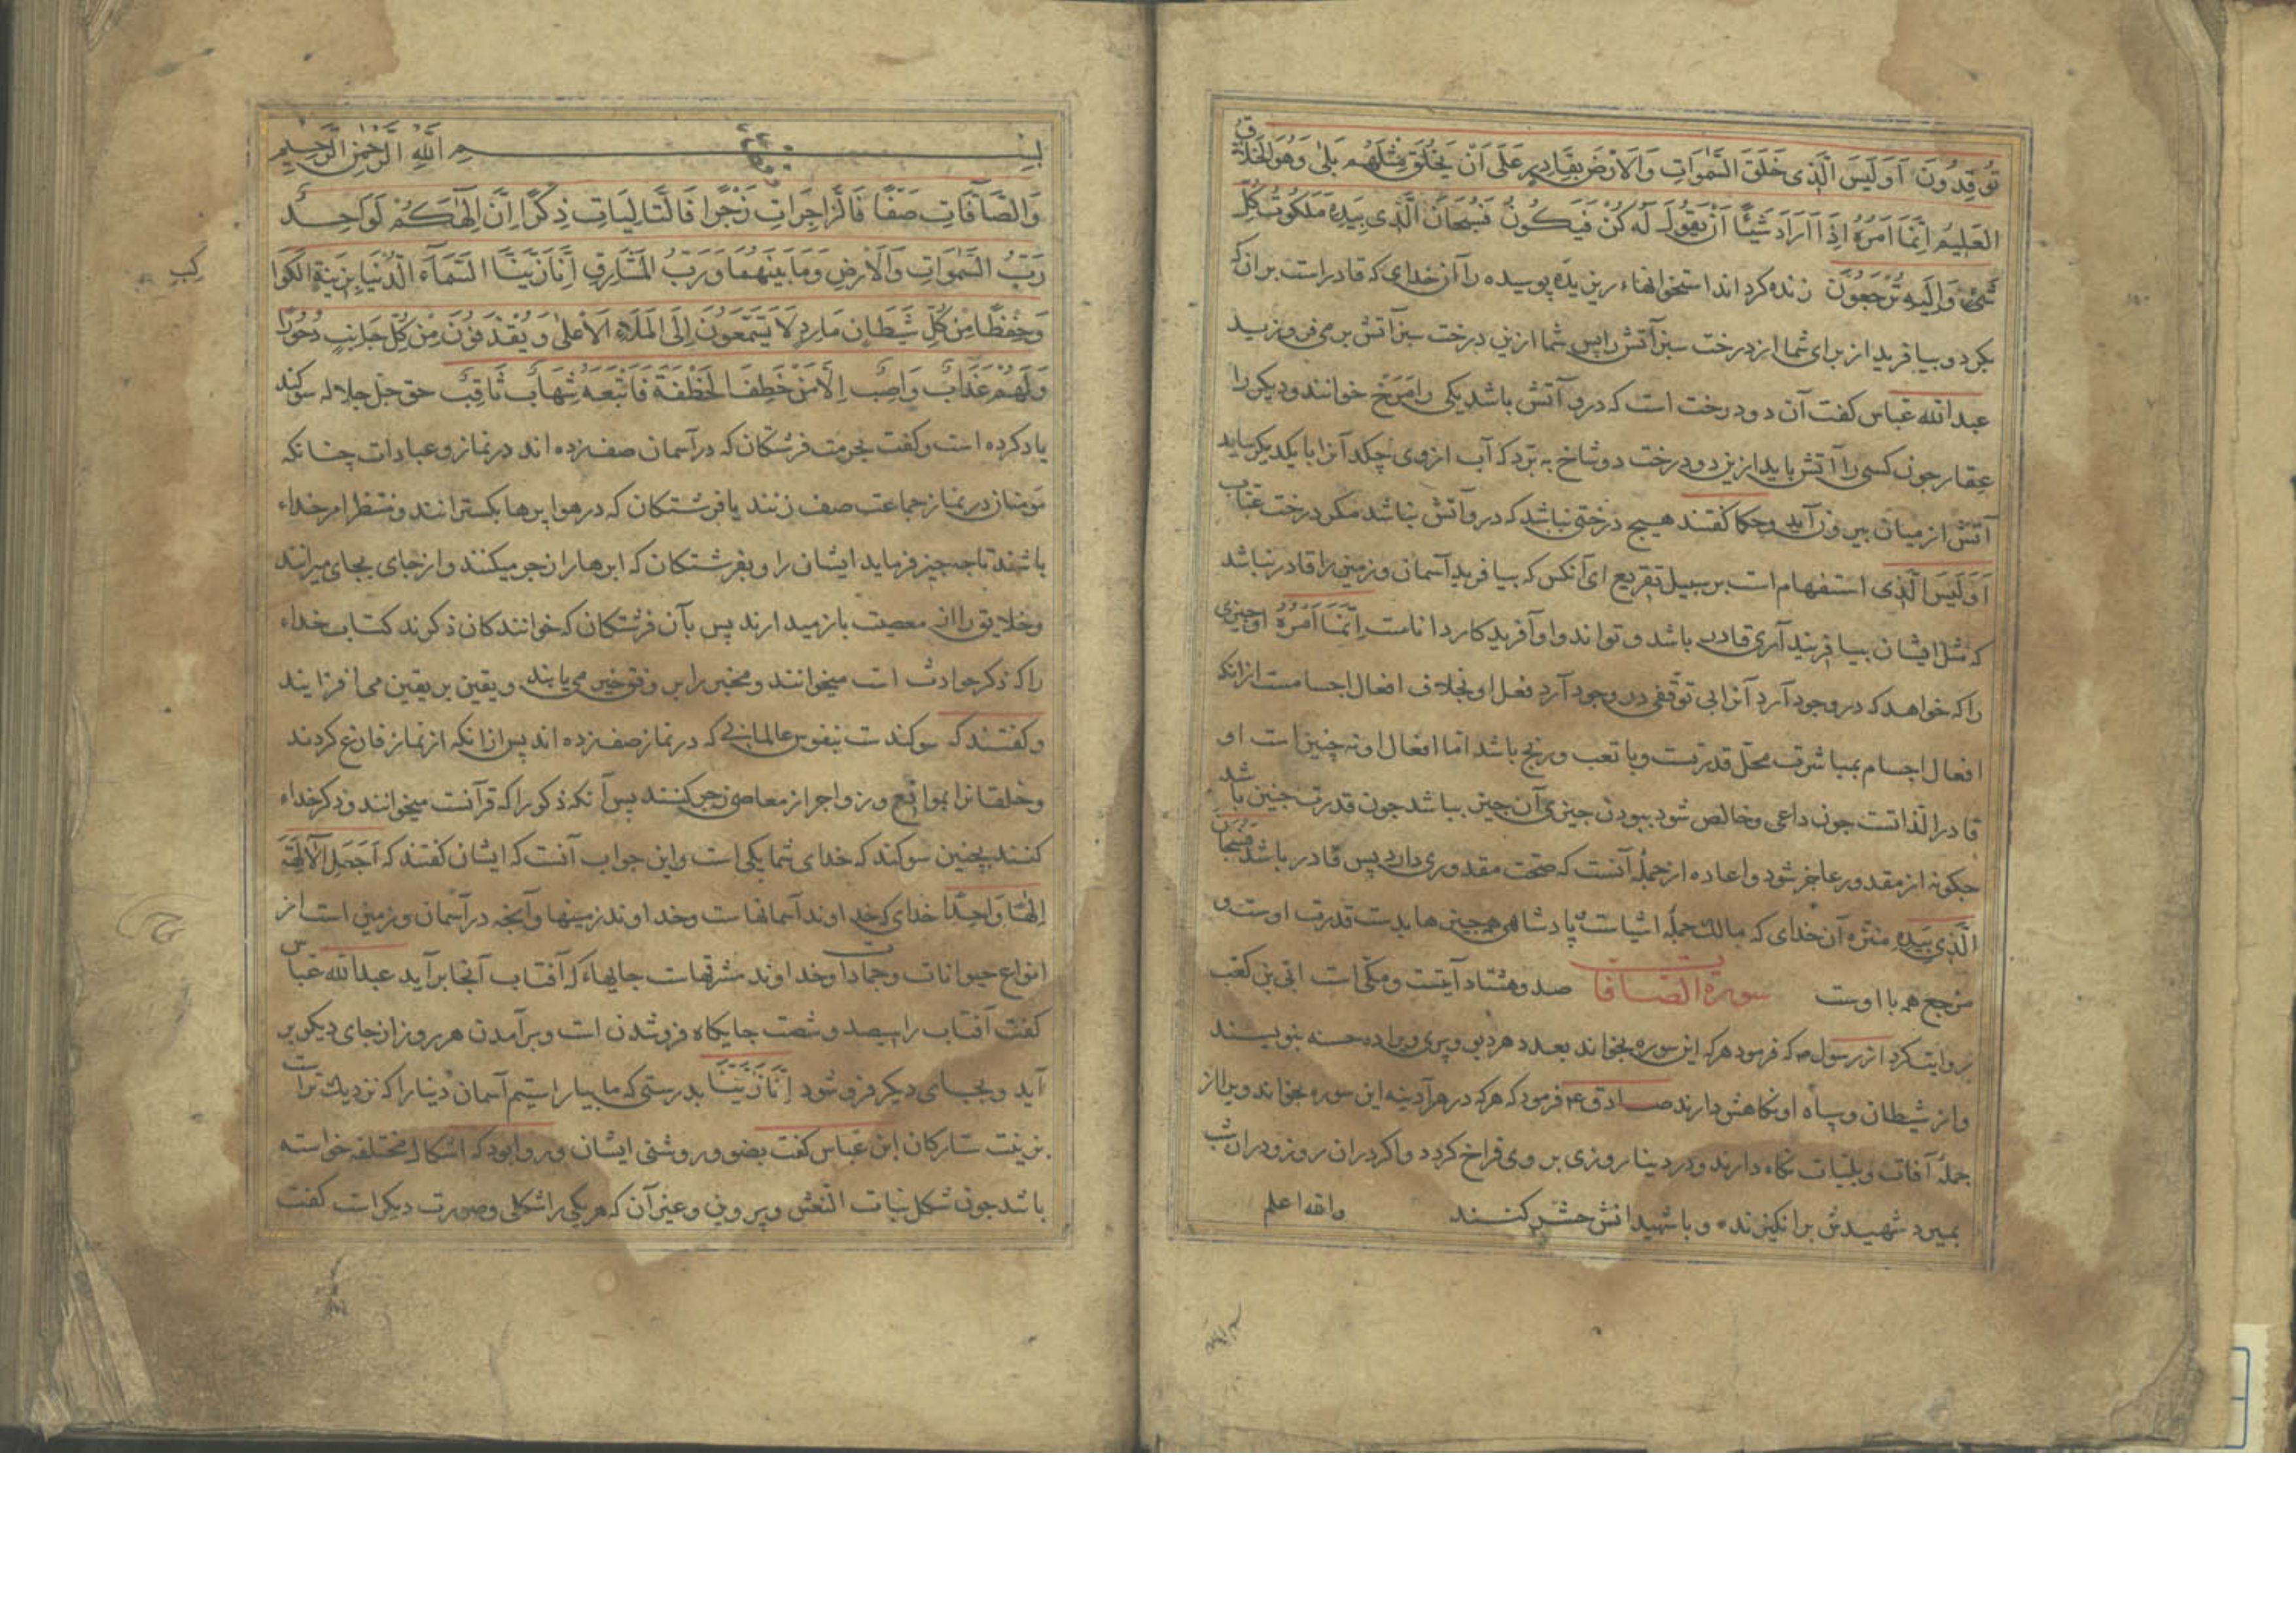 تُوقِدُونَ اَوَلَيسَ الَّذی خَلَقَ السَّمٰوَاتِ وَالاَرْضَ بِقَادِرٍ عَلٰی اَنْ يَخْلُقَ مِثْلَهُم بَلٰی وَهُوَ الخَلاَّقُ
العَلِيمُ اِنَّمَا اَمرُهُ اِذَا اَرَادَ شَيئًا اَنْ يَقُولَ لَه کُنْ فَيَکُونُ فَسُبحَانَ الَّذی بِيَدِهِ مَلَکُوتُ کُلِّ
شَیْءٍ وَاِلَيهِ تُرْجَعُونَ زنده کرداند استخوانهاء ریزیده پوسیده را آن خدای که قادر است بر آن که
بکرد و بیافرید از برای شما از درخت سبز آتش را پس شما ازین درخت سبز آتش بر می فروزید
عبدالله عباس کفت آن دو درخت است که درو آتش باشد یکی را مَرْخ خوانند و دیکر را
عِقار جون کسی را آتش باید ازین دو درخت دو شاخ به برد که آب ازوی بچکد آنرا با یکدیکر ساید
آتش از میان بیرون آید و حکما کفتند هیچ درختی نباشد که درو آتش نباشد مکر درخت عنّاب
اَوَلَيسَ الَّذی استفهام است بر سبیل تقریع ای آنکس که بیافرید آسمان و زمین را قادر نباشد
که مثل ایشان بیافریند آری قادر باشد و تواند و او آفریدکار داناست اِنَّمَا اَمرُهُ او چیزی
را که خواهد که در وجود آرد آنرا بی توقفی در وجود آرد فعل او بخلاف افعال اجسامست از انکه
افعال اجسام بمباشرت محلّ قدرتست و با تعب و رنج باشد اما افعال او نه چنین است او
قادر الذاتست جون داعی و خالص شود ببودن جیزی آن جیز بباشد جون قدرت جنین باشد
جکونه از مقدور عاجز شود و اعاده از جملهٔ آنست که صحّت مقدوری دارد پس قادر باشد فَسُبحَانَ
الَّذِی بِيَدِهِ منزه آن خدای که مالک جملهٔ اشیاست پادشاهی همه جیزها بدست قدرت اوست و
مرجع همه با اوست سورة الصافات صد و هشتاد آیتست و مکّی است ابیّ بن کعب
روایت کرد از رسول ص که فرمود هرکه این سوره بخواند بعدد هر دیوی و پری ویرا ده حسنه بنویسند
و از شیطان و سپاه او نکاهش دارند صادق ع فرمود که هرکه در هر آدینه این سوره بخواند ویرا از
جملهٔ آفات و بلیّات نکاه دارند و در دنیا روزی بر وی فراخ کردد و اکر در ان روز و در ان شب
بمیرد شهیدش برانکیزند و با شهیدانش حشر کنند والله اعلم
بسم الله الرحمن الرحیم
وَالصَّآفَّاتِ صَفًّا فَالزَّاجِرَاتِ زَجْرًا فَالتَّالِيَاتِ ذِکْرًا اِنَّ اِلٰهَکُمْ لَوَاحِدٌ
رَبُّ السَّمٰوَاتِ وَالاَرْضِ وَمَا بَينَهُمَا وَرَبُّ المَشَارِقِ اِنَّا زَيَّنَّا السَّمَآءَ الدُّنيَا بِزِينَةٍ الکَوَا
کِبِ
وَحِفْظًا مِن کُلِّ شَيطَانٍ مَارِدٍ لَا يَسَّمَّعُونَ اِلَی المَلَاءِ الاَعْلٰی وَيُقْذَفُونَ مِنْ کُلِّ جَانِبٍ دُحُورًا
وَلَهُم عَذَابٌ وَاصِبٌ اِلاَّ مَنْ خَطِفَ الخَطْفَةَ فَاَتْبَعَهُ شِهَابٌ ثَاقِبٌ حق جل جلاله سوکند
یاد کرده است و کفت بحرمت فرشتکان که در آسمان صف زده اند در نماز و عبادات چنانکه
مؤمنان در نماز جماعت صف زنند یا فرشتکان که در هوا پرها بکسترانند و منتظر امر خداء
باشند تا جه جیز فرماید ایشان را و بفرشتکان که ابرها را زجر میکنند و از جای بجای میرانند
و خلایق را از معصیت باز میدارند پس بآن فرشتکان که خوانندکان ذکرند کتاب خداء
را که ذکر حوادث است میخوانند و مخبر را بر وفق خبر می یابند و یقین بر یقین می افزایند
و کفتند که سوکندست بنفوس عالمانی که در نماز صف زده اند پس از انکه از نماز فارغ کردند
و خلقانرا بمواقع و زواجر از معاصی زجر کنند پس آنکه ذکر را که قرآنست میخوانند و ذکر خداء
کنند بچنین سوکند که خدای شما یکی است و این جواب آنست که ایشان کفتند که اَجَعَلَ الآلِهَةَ
اِلٰهًا وَاحِدًا خدای که خداوند آسمانهاست و خداوند زمینها و آنجه در آسمان و زمین است از
انواع حیوانات و جمادات و خداوند مشرقهاست جایهاء که آفتاب آنجا برآید عبدالله عباس
کفت آفتاب را سیصد و شصت جایکاه فروشدن است و برآمدن هر روز از جای دیکر بر
آید و بجای دیکر فرو شود اِنَّا زَيَّنَّا بدرستی که ما بیاراستیم آسمان دنیا را که نزدیک تراست
بزینت ستارکان ابن عباس کفت بضوء و روشنی ایشان و روا بود که اشکال مختلفه خواسته
باشد جون شکل بنات النعش و پروین و غیر آن که هر یکی را شکلی و صورت دیکر است کفت